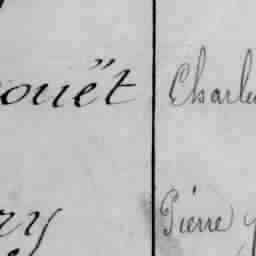 ouët Charle
ry Pierre